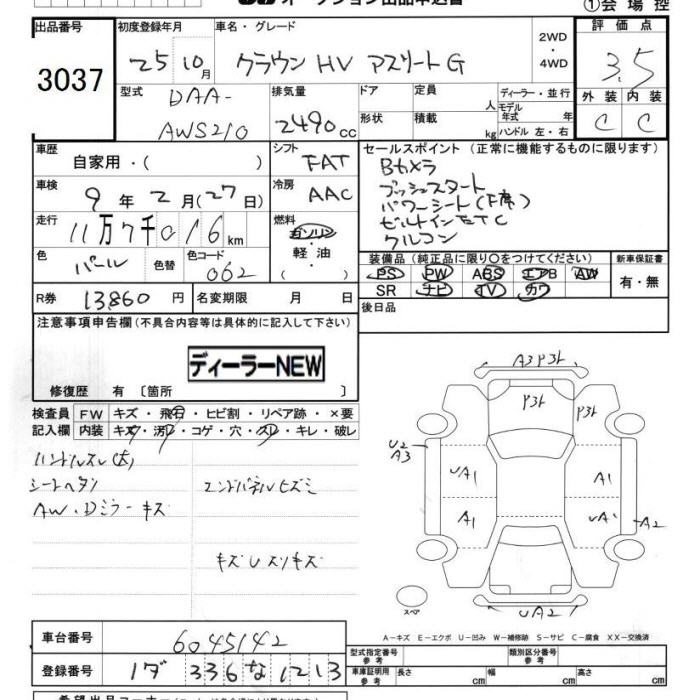 オークション出品申込書
①会場控
出品番号
3037
初度登録年月
25 10月
車名・グレード
クラウン HV アスリートG
2WD
・
4WD
評価点
3.5
外装 内装
C C
型式
DAA-
AWS210
排気量
2490cc
ドア
形状
定員
人
積載
kg
ディーラー・並行
モデル年式 年
ハンドル 左・右
車歴
自家用・( )
シフト
FAT
セールスポイント (正常に機能するものに限ります)
Bカメラ
プッシュスタート
パワーシート(F席)
ビルトインETC
クルコン
車検
9年2月(27日)
冷房
AAC
走行
11万7千016km
燃料
ガソリン
・
軽油
( ・ )
色
パール
色替
色コード
062
装備品 (純正品に限り○をつけてください)
PS PW ABS エアB AW
SR ナビ TV カワ
新車保証書
有・無
R券
13860円
名変期限 月 日
後日品
注意事項申告欄(不具合内容等は具体的に記入して下さい)
ディーラーNEW
修復歴 有 〔箇所 〕
検査員
記入欄
FW キズ・飛石・ヒビ割・リペア跡・×要
内装 キズ・汚レ・コゲ・穴・スレ・キレ・破レ
ハンドルスレ(大)
シートヘタリ
AW・Dミラーキズ
エンドパネルヒズミ
キズUスリキズ
A3 P31
P31
P31
U2
A3
UA1
A1
A1
UA1
A2
UA2
スペア
A-キズ E-エクボ U-凹み W-補修跡 S-サビ C-腐食 XX-交換済
車台番号
6045142
登録番号
336な1213
型式指定番号
参考
類別区分番号
参考
車庫証明用
参考
長さ cm
幅 cm
高さ cm